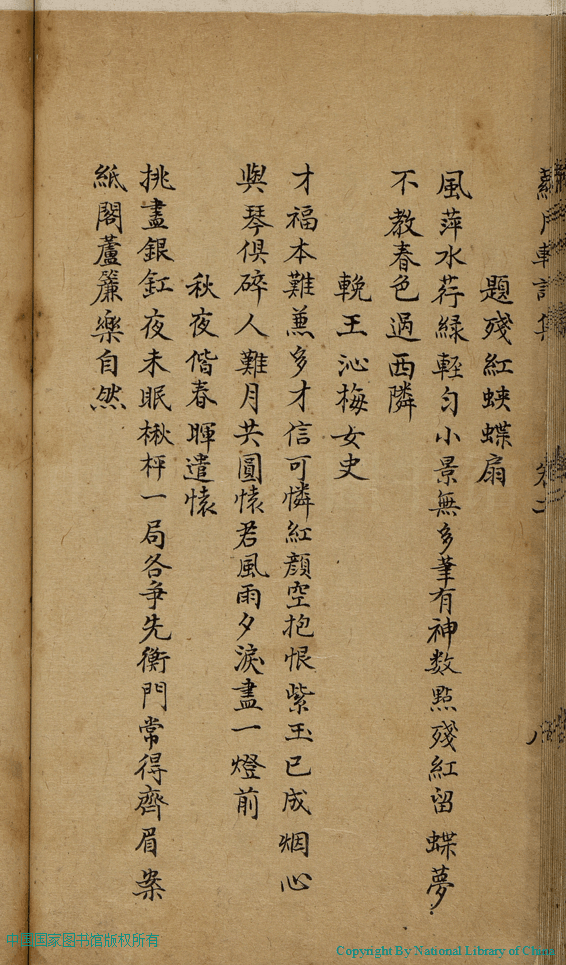 題殘紅蛱蝶扇
風萍水荇緑輕勻小景無多筆有神数點殘紅留蝶夢
不教春色過西隣
輓王沁梅女史
才福本難蒹多才信可憐紅顔空抱恨紫玉已成烟心
與琴俱碎人難月共圓懐君風雨夕淚盡一燈前
秋夜偕春暉遣懐
挑盡銀釭夜未眠楸枰一局各爭先衡門常得齊眉案
紙閣蘆簾樂自然
中国国家图书馆版权所有
Copyright By National Library of China